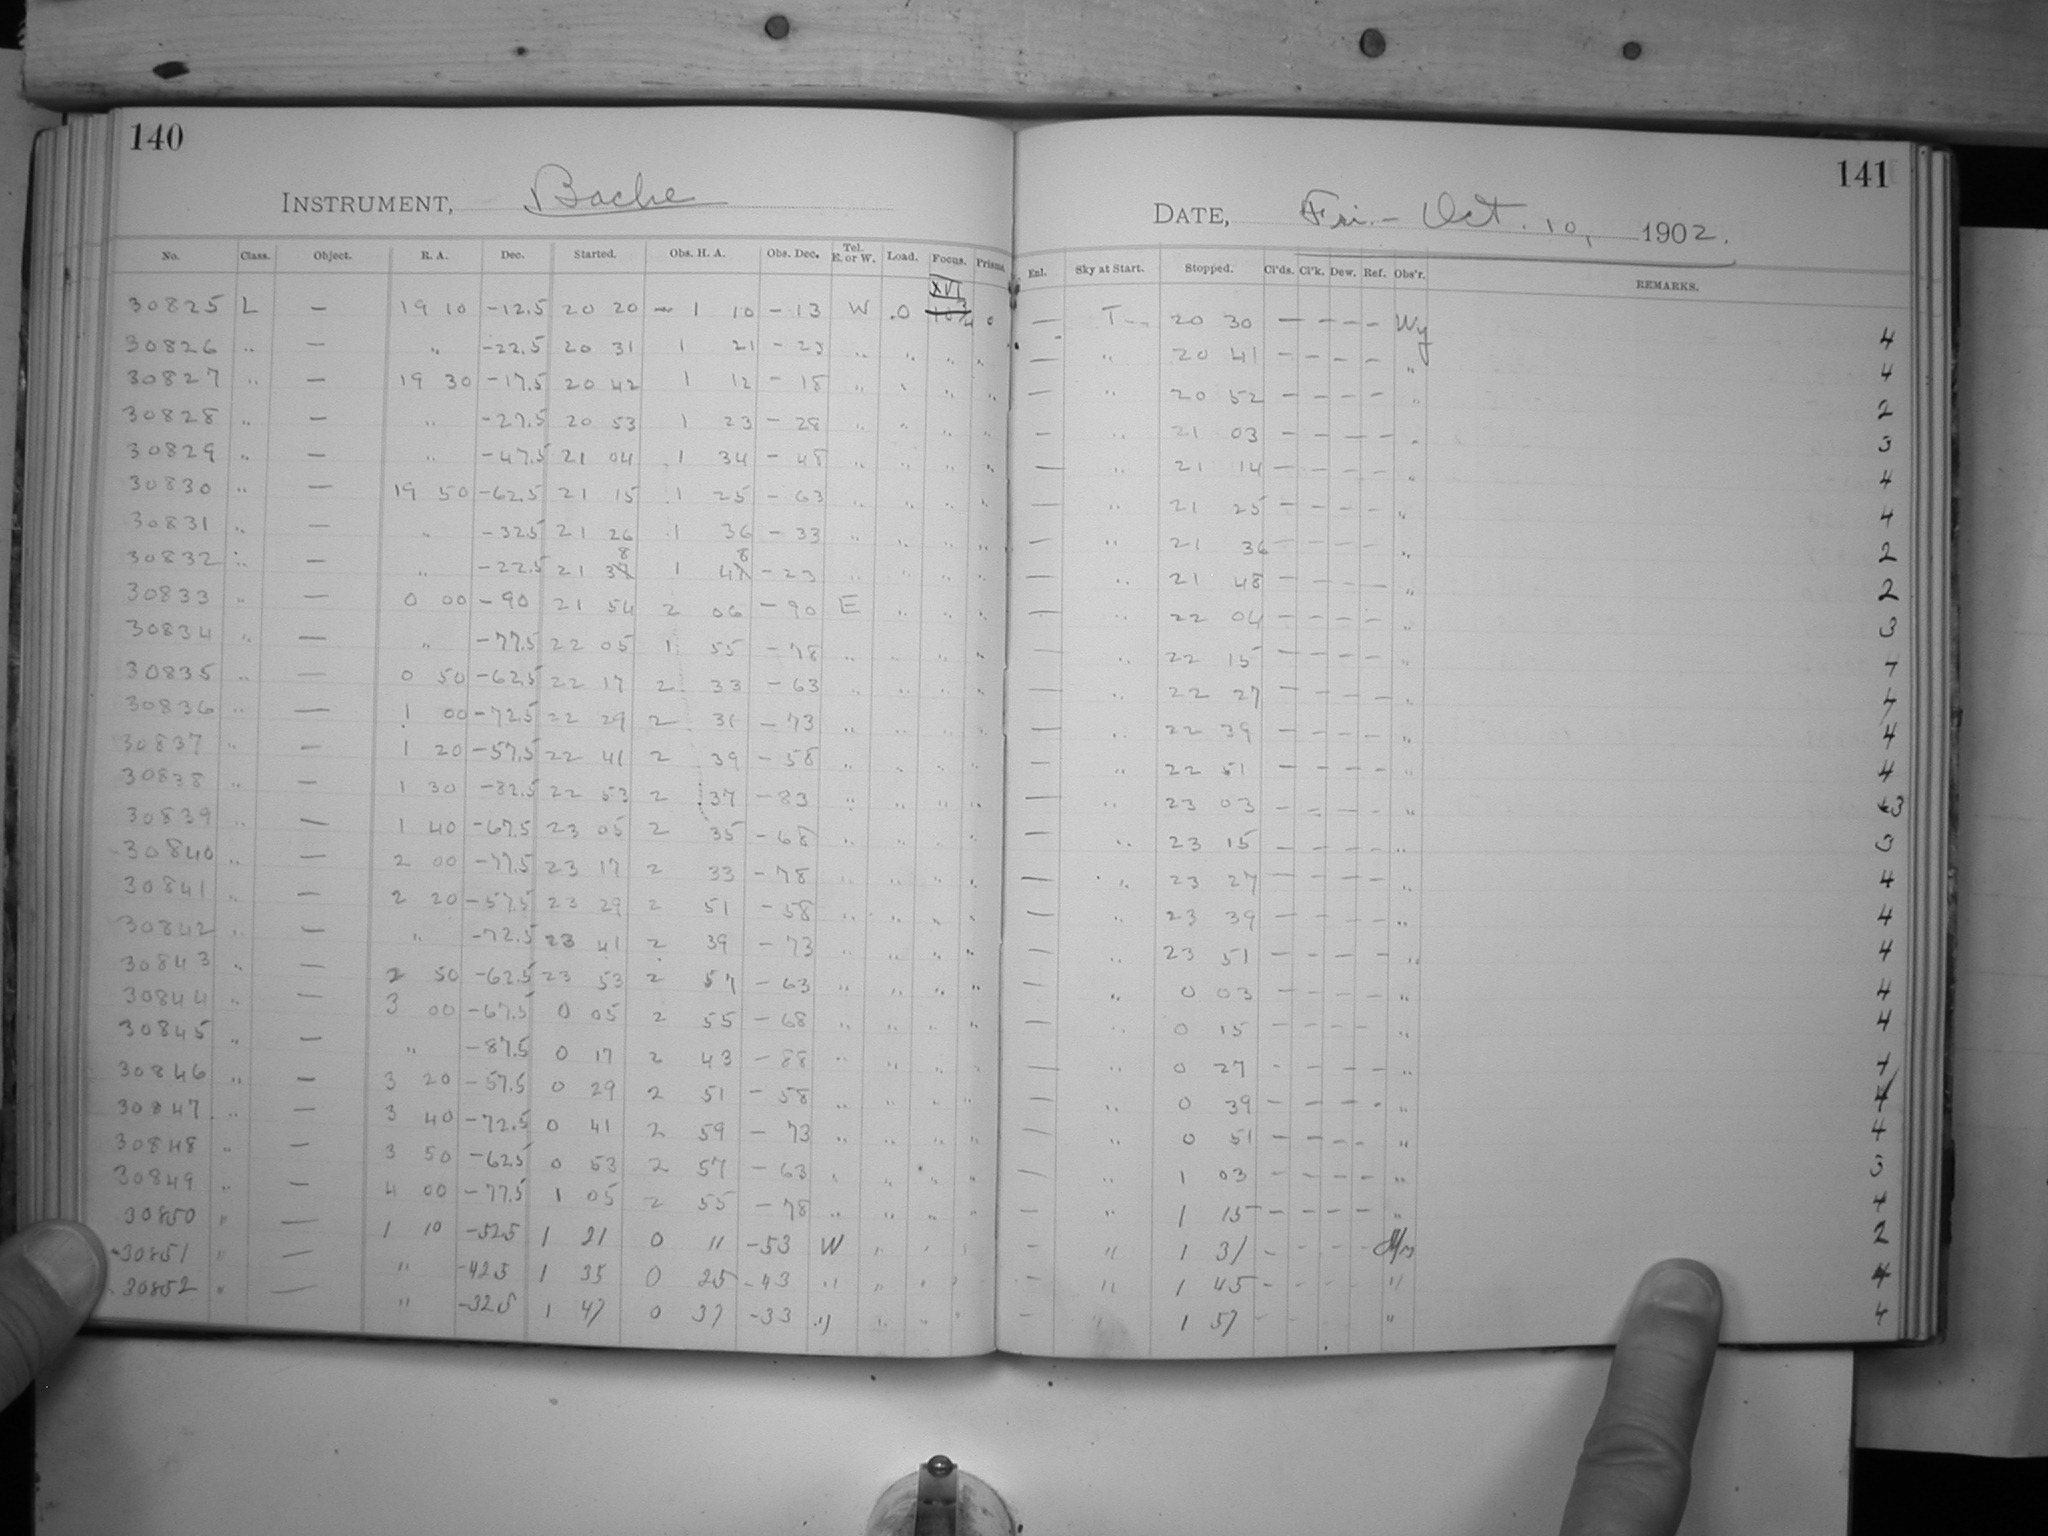 140
INSTRUMENT, Bache
No. Class. Object. R. A. Dec. Started. Obs. H. A. Obs. Dec. Tel. E. or W. Load. Focus. Prisms.
XVI
30825 L — 19 10 -12.5 20 20 - 1 10 - 13 W .0 10 3/4 0
30826 " — " -22.5 20 31 1 21 - 23 " " " "
30827 " — 19 30 -17.5 20 42 1 12 - 18 " " " "
30828 " — " -27.5 20 53 1 23 - 28 " " " "
30829 " — " -47.5 21 04 1 34 - 48 " " " "
30830 " — 19 50 -62.5 21 15 1 25 - 63 " " " "
30831 " — " -32.5 21 26 1 36 - 33 " " " "
30832 " — " -22.5 21 38 1 48 - 23 " " " "
30833 " — 0 00 -90 21 54 2 06 - 90 E " " "
30834 " — " -77.5 22 05 1 55 - 78 " " " "
30835 " — 0 50 -62.5 22 17 2 33 - 63 " " " "
30836 " — 1 00 -72.5 22 29 2 31 - 73 " " " "
30837 " — 1 20 -57.5 22 41 2 39 - 58 " " " "
30838 " — 1 30 -82.5 22 53 2 37 - 83 " " " "
30839 " — 1 40 -67.5 23 05 2 35 - 68 " " " "
30840 " — 2 00 -77.5 23 17 2 33 - 78 " " " "
30841 " — 2 20 -57.5 23 29 2 51 - 58 " " " "
30842 " — " -72.5 23 41 2 39 - 73 " " " "
30843 " — 2 50 -62.5 23 53 2 57 - 63 " " " "
30844 " — 3 00 -67.5 0 05 2 55 - 68 " " " "
30845 " — " -87.5 0 17 2 43 - 88 " " " "
30846 " — 3 20 -57.5 0 29 2 51 - 58 " " " "
30847 " — 3 40 -72.5 0 41 2 59 - 73 " " " "
30848 " — 3 50 -62.5 0 53 2 57 - 63 " " " "
30849 " — 4 00 -77.5 1 05 2 55 - 78 " " " "
30850 " — 1 10 -52.5 1 21 0 11 -53 W " " "
30851 " — " -42.5 1 35 0 25 -43 " " " "
30852 " — " -32.5 1 47 0 37 -33 " " " "
141
DATE, Fri. - Oct. 10, 1902.
Enl. Sky at Start. Stopped. Cl'ds. Cl'k. Dew. Ref. Obs'r. REMARKS.
— T 20 30 — — — — Wy 4
— " 20 41 — — — — " 4
— " 20 52 — — — — " 2
— " 21 03 — — — — " 3
— " 21 14 — — — — " 4
— " 21 25 — — — — " 4
— " 21 36 — — — — " 2
— " 21 48 — — — — " 2
— " 22 04 — — — — " 3
— " 22 15 — — — — " 4
— " 22 27 — — — — " 4
— " 22 39 — — — — " 4
— " 22 51 — — — — " 4
— " 23 03 — — — — " 3
— " 23 15 — — — — " 3
— " 23 27 — — — — " 4
— " 23 39 — — — — " 4
— " 23 51 — — — — " 4
— " 0 03 — — — — " 4
— " 0 15 — — — — " 4
— " 0 27 — — — — " 4
— " 0 39 — — — — " 4
— " 0 51 — — — — " 4
— " 1 03 — — — — " 3
— " 1 15 — — — — " 4
— " 1 31 — — — — 2
— " 1 45 — — — — " 4
— " 1 57 — — — — " 4